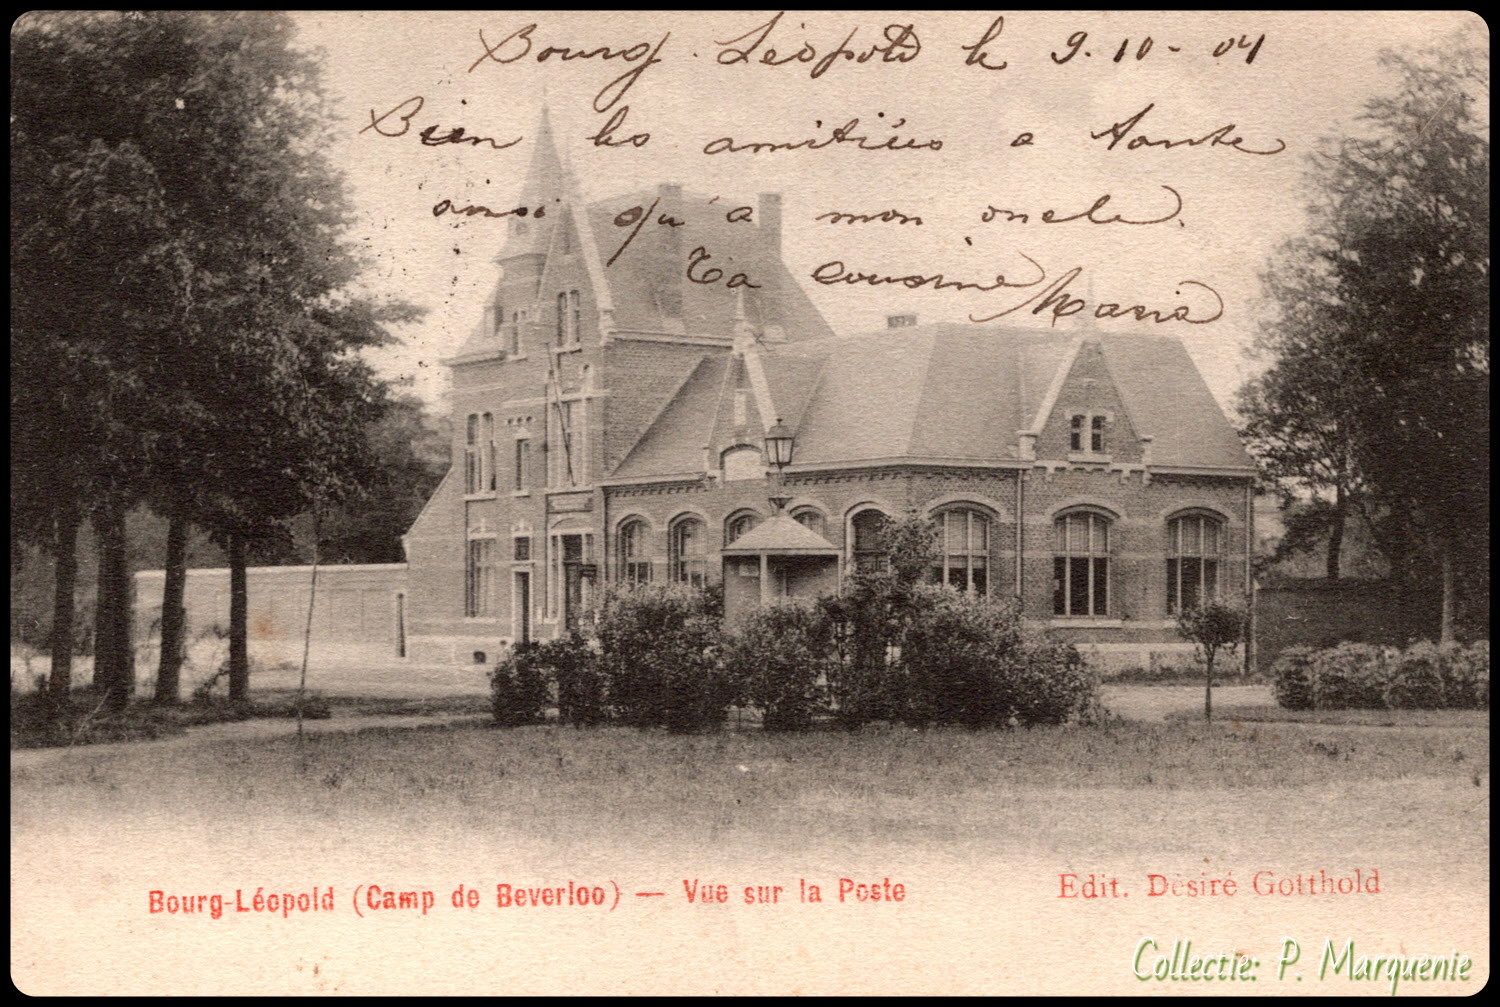 Bourg-Léopold le 9-10-04
Bien les amitiées a Tante
ainsi qu'a mon oncle.
Ta cousine Maria
Bourg-Léopold (Camp de Beverloo) — Vue sur la Poste
Edit. Désiré Gotthold
Collectie: P. Marquenie